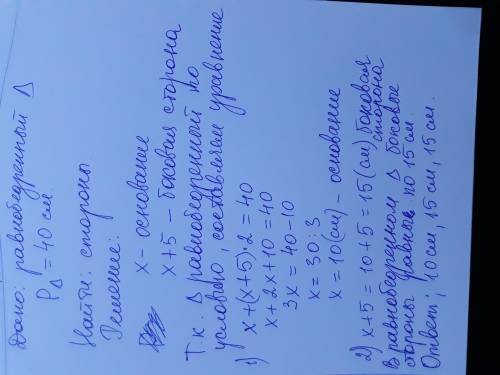 Дано: равнобедренный Δ
PΔ = 40 см
Найти: стороны
Решение:
x - основание
x+5 - боковая сторона
Т.к. Δ равнобедренный по
условию, составляем уравнение
1) x+(x+5)·2=40
x+2x+10=40
3x=40-10
x=30:3
x=10(см) - основание
2) x+5=10+5=15(см) боковая сторона
В равнобедренном Δ боковые
стороны равные по 15 см.
Ответ: 10 см, 15 см, 15 см.